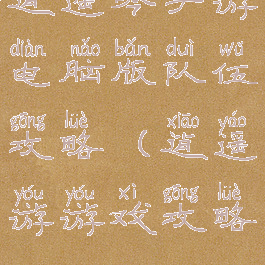 diàn nǎo bǎn duì wǔ
电脑版队伍
gōng lüè xiāo yáo
攻略(逍遥
yóu yóu xì gōng lüè
游游戏攻略